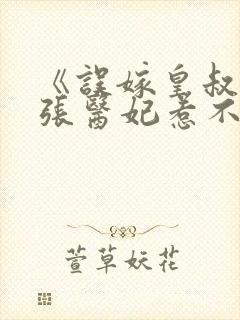 《誤嫁皇叔
張醫妃惹不
萱草妖花